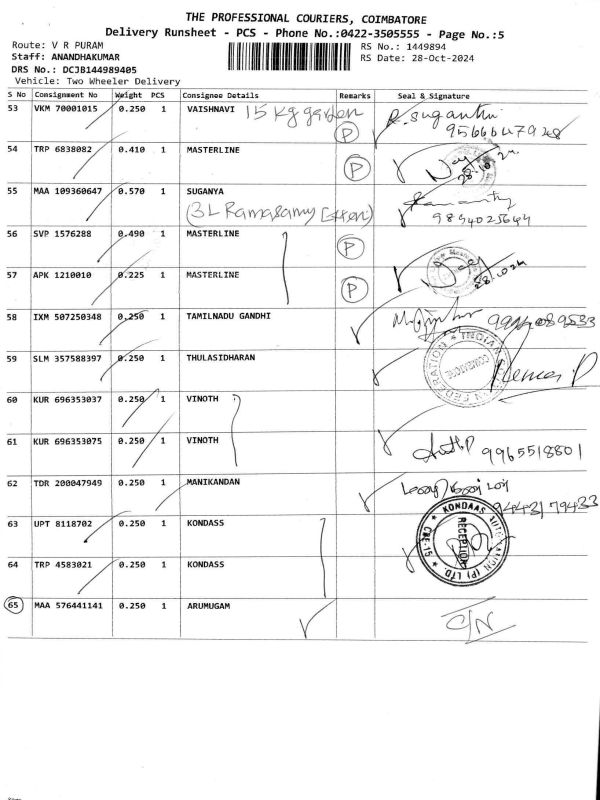 THE PROFESSIONAL COURIERS, COIMBATORE
Delivery Runsheet - PCS - Phone No.:0422-3505555 - Page No.:5
Route: V R PURAM
RS No.: 1449894
Staff: ANANDHAKUMAR
RS Date: 28-Oct-2024
DRS No.: DCJB144989405
Vehicle: Two Wheeler Delivery
S No Consignment No Weight PCS Consignee Details Remarks Seal & Signature
53 VKM 70001015 0.250 1 VAISHNAVI 15 kg garden P
54 TRP 6838082 0.410 1 MASTERLINE P
28.10.24
55 MAA 109360647 0.570 1 SUGANYA
(3L Ramasamy
9894025644
56 SVP 1576288 0.490 1 MASTERLINE P
57 APK 1210010 0.225 1 MASTERLINE P
28.10.24
58 IXM 507250348 0.250 1 TAMILNADU GANDHI
59 SLM 357588397 0.250 1 THULASIDHARAN
60 KUR 696353037 0.250 1 VINOTH
61 KUR 696353075 0.250 1 VINOTH 9965518801
62 TDR 200047949 0.250 1 MANIKANDAN
9443179433
63 UPT 8118702 0.250 1 KONDASS
KONDAAS AUTOMATION (P) LTD. CBE-15
RECEPTION
64 TRP 4583021 0.250 1 KONDASS
65 MAA 576441141 0.250 1 ARUMUGAM C/N